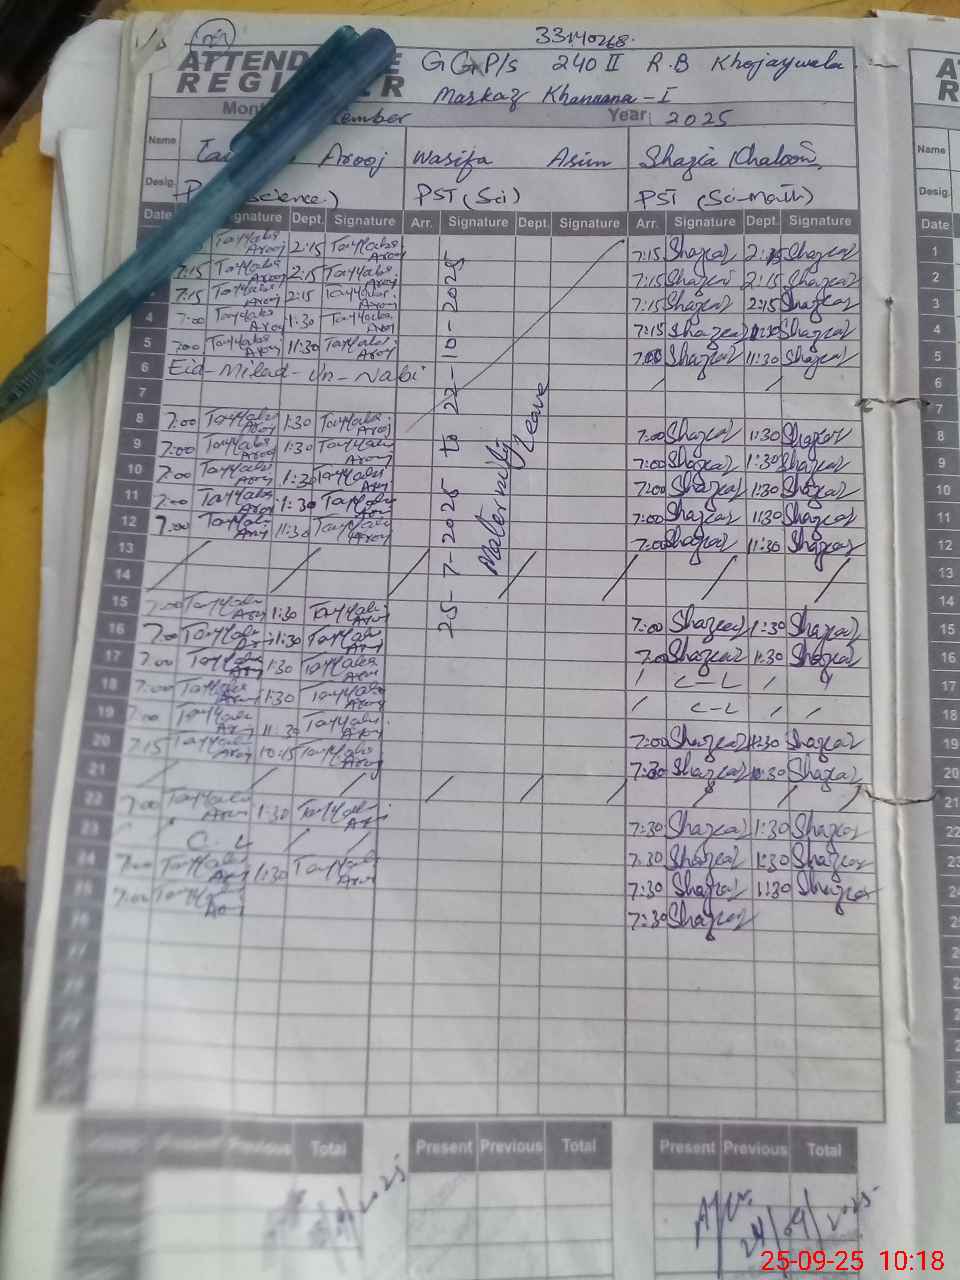 33140268.
ATTENDANCE REGISTER
GGP/s 240 II R.B Khojaywala.
Markaz Khanuana-I
Month: September Year: 2025
Name Arooj Wasifa Asim Shazia Khatoon
Desig. Science) PST (Sci) PST (Sci-math)
Date Signature Dept. Signature Arr. Signature Dept. Signature Arr. Signature Dept. Signature Date
Tayyaba Arooj 2:15 Tayyaba Arooj 7:15 Shazia 2:15 Shazia 1
7:15 Tayyaba Arooj 2:15 Tayyaba Arooj 7:15 Shazia 2:15 Shazia 2
7:15 Tayyaba Arooj 2:15 Tayyaba Arooj 7:15 Shazia 2:15 Shazia 3
4 7:00 Tayyaba Arooj 1:30 Tayyaba Arooj 7:15 Shazia Shazia 4
5 7:00 Tayyaba Arooj 11:30 Tayyaba Arooj 7:00 Shazia 11:30 Shazia 5
6 Eid-Milad-un-Nabi 6
7 7
8 7:00 Tayyaba Arooj 1:30 Tayyaba Arooj 7:00 Shazia 1:30 Shazia 8
9 7:00 Tayyaba Arooj 1:30 Tayyaba Arooj 7:00 Shazia 1:30 Shazia 9
10 7:00 Tayyaba Arooj 1:30 Tayyaba Arooj 7:00 Shazia 1:30 Shazia 10
11 7:00 Tayyaba Arooj 1:30 Tayyaba Arooj 7:00 Shazia 1:30 Shazia 11
12 7:00 Tayyaba Arooj 11:30 Tayyaba Arooj 7:00 Shazia 11:30 Shazia 12
25-7-2025 to 22-10-2025
Maternity Leave
13 13
14 14
15 7:00 Tayyaba Arooj 1:30 Tayyaba Arooj 7:00 Shazia 1:30 Shazia 15
16 7:00 Tayyaba Arooj 1:30 Tayyaba Arooj 7:00 Shazia 1:30 Shazia 16
17 7:00 Tayyaba Arooj 1:30 Tayyaba Arooj C-L 17
18 7:00 Tayyaba Arooj 1:30 Tayyaba Arooj C-L 18
19 7:00 Tayyaba Arooj 11:30 Tayyaba Arooj 7:00 Shazia 11:30 Shazia 19
20 7:15 Tayyaba Arooj 10:15 Tayyaba Arooj 7:30 Shazia Shazia 20
21 21
22 7:00 Tayyaba Arooj 1:30 Tayyaba Arooj 7:30 Shazia 1:30 Shazia 22
23 C.L 7:30 Shazia 1:30 Shazia 23
24 7:00 Tayyaba Arooj 1:30 Tayyaba Arooj 7:30 Shazia 1:30 Shazia 24
25 7:00 Tayyaba Arooj 7:30 Shazia
Present Previous Total Present Previous Total Present Previous Total
24/09/2025
25-09-25 10:18